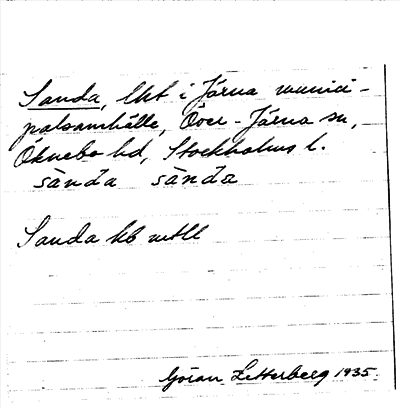 Sanda, lht i Järna munici-
palsamhälle, Över-Järna sn,
Öknebo hd, Stockholms l.
sànda sàndɑ
Sanda hb
Göran Zetterberg 1935.